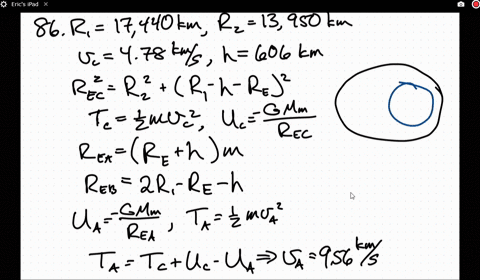 Eric's iPad
86. R₁ = 17,440 km, R₂ = 13,950 km
v_c = 4.78 km/s, h = 606 km
R_EC² = R₂² + (R₁ - h - R_E)²
T_c = ½ m v_c², U_c = -GMm/R_EC
R_EA = (R_E + h) m
R_EB = 2R₁ - R_E - h
U_A = -GMm/R_EA, T_A = ½ m v_A²
T_A = T_c + U_c - U_A ⇒ v_A = 9.56 km/s